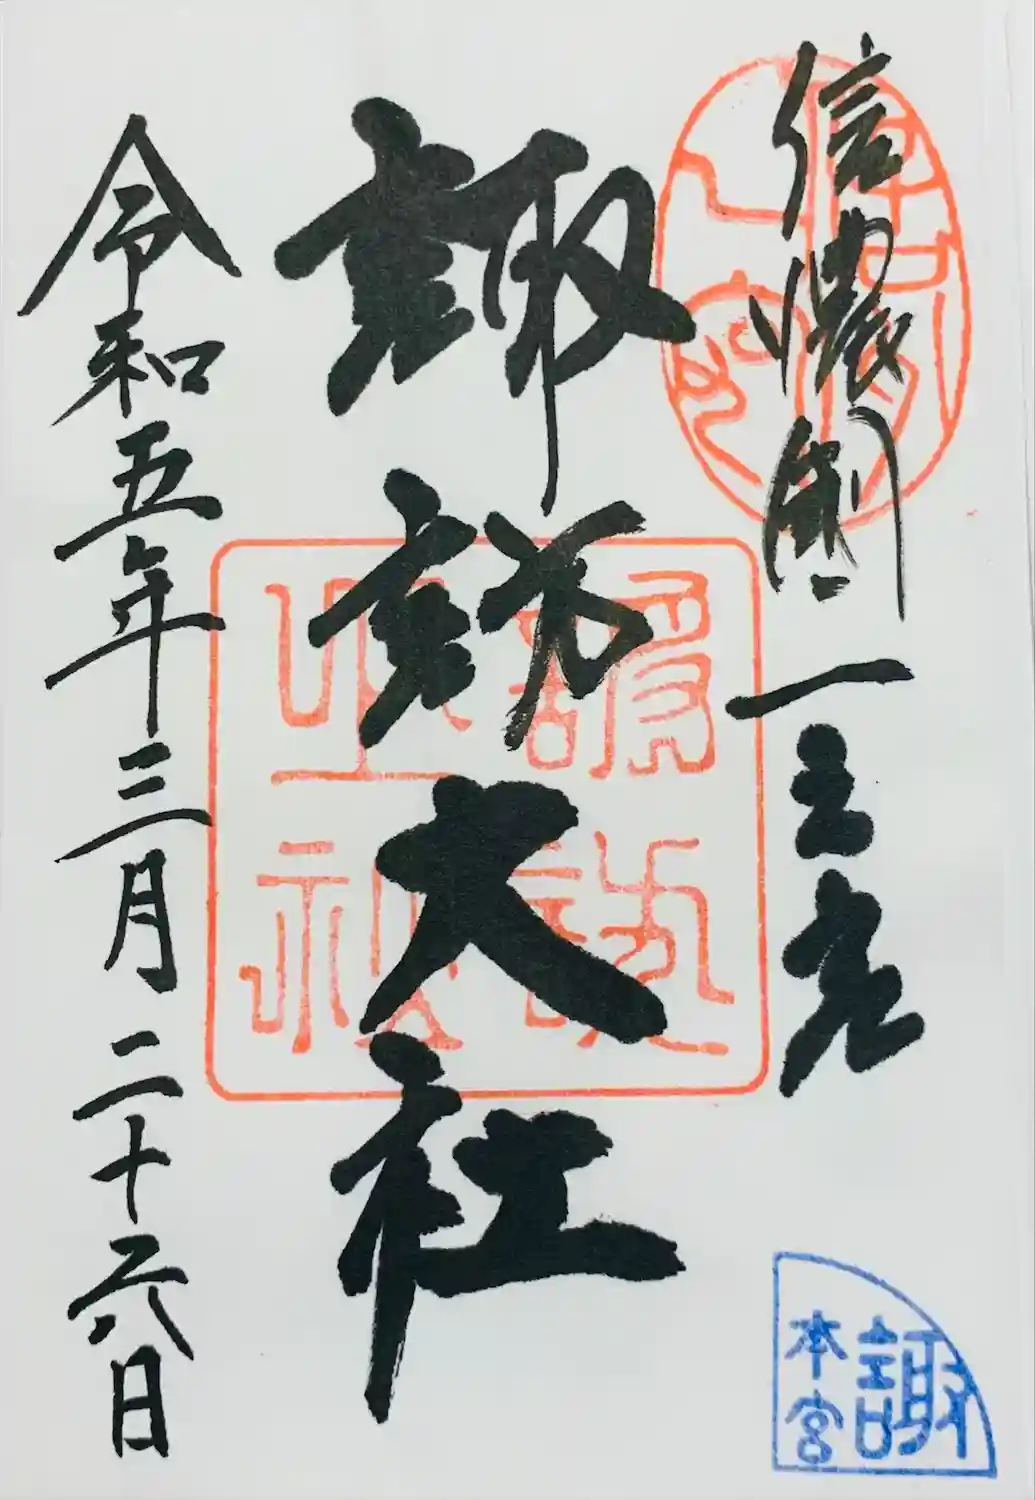 信濃國一之宮
諏訪大社
令和五年三月二十六日
諏
本宮